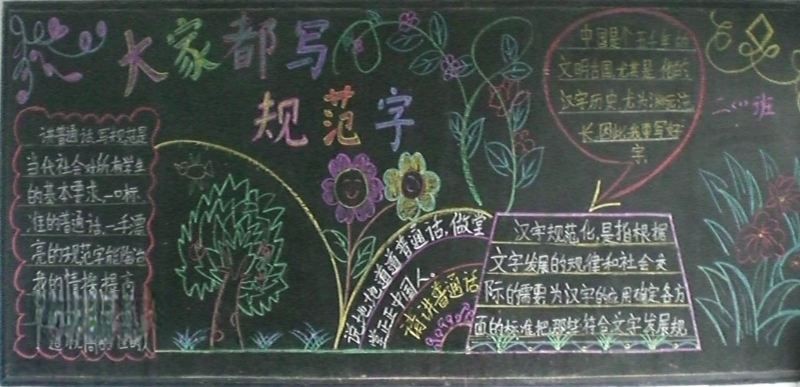 大家都写
规范字
讲普通话,写规范字
当代社会对所有学生
的基本要求,一口标
准的普通话,一手漂
亮的规范字能陶冶
我的情操提高
说地地道道普通话,做堂
堂正正中国人。
请讲普通话
中国是个五千年的
文明古国尤其是他的
汉字历史尤为源远流
长,因此我要写好
字
二(1)班
汉字规范化,是指根据
文字发展的规律和社会交
际的需要为汉字的应用确定各方
面的标准把那些符合文字发展规